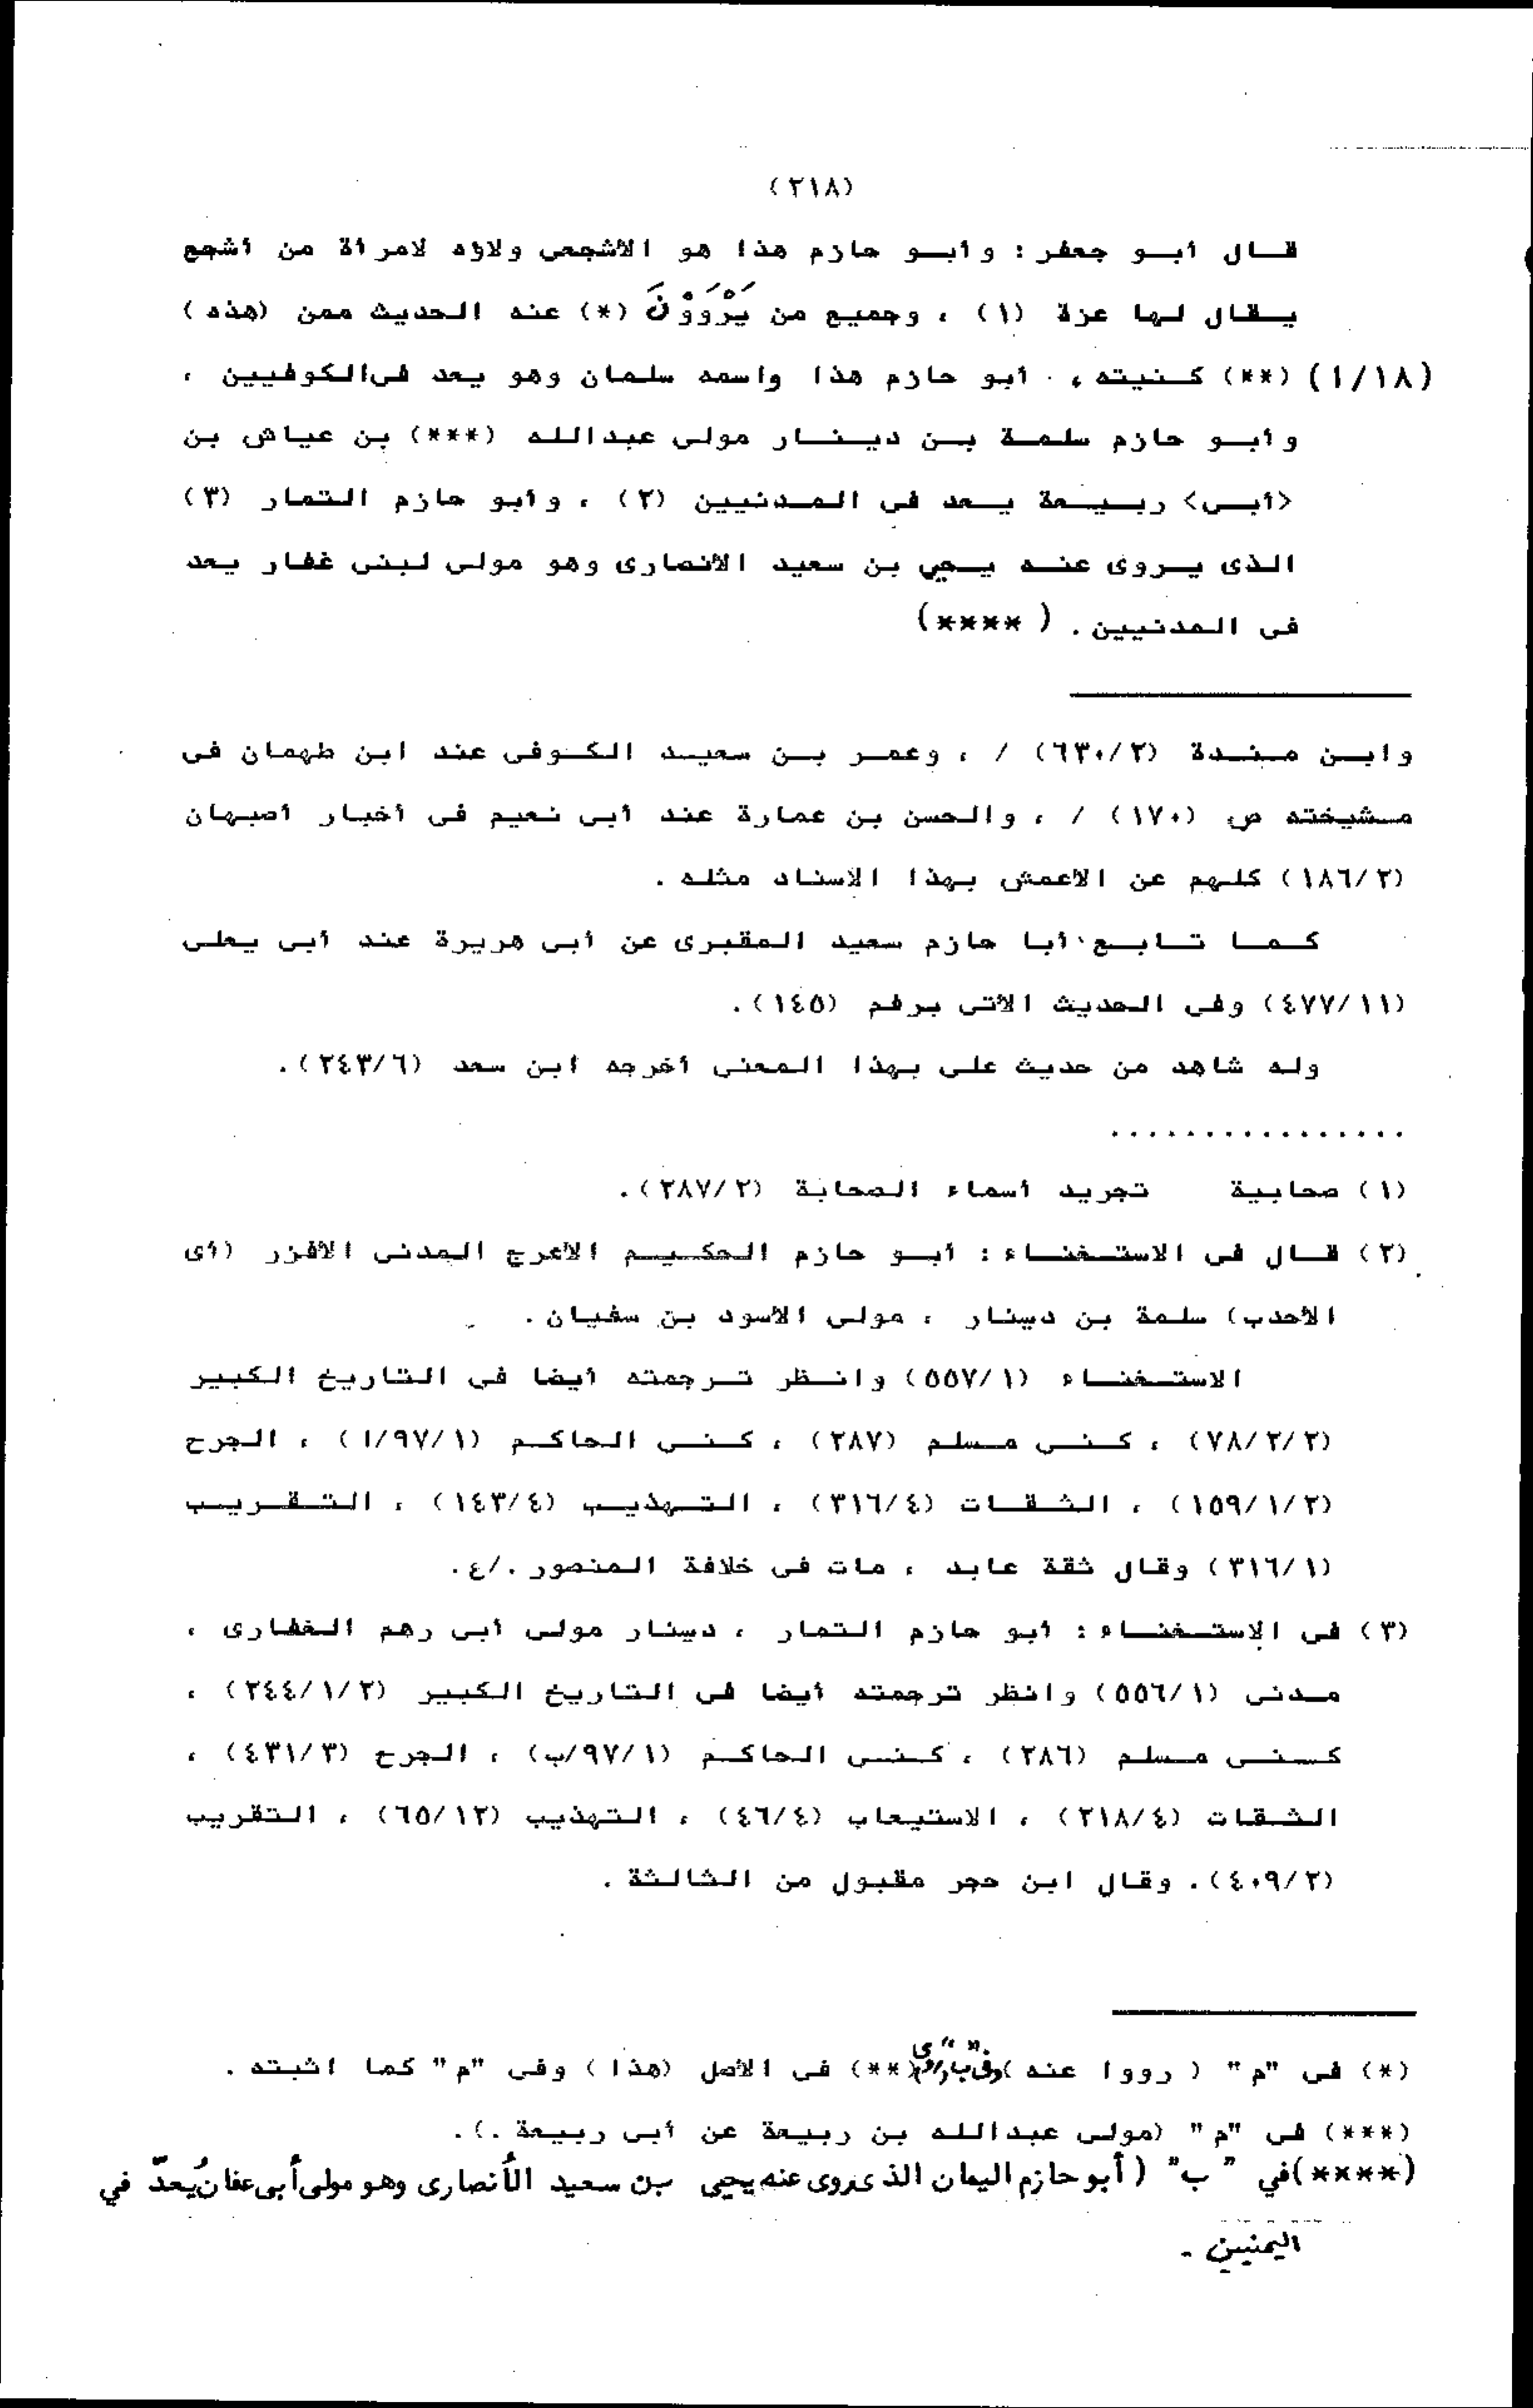 (٢١٨)
قال أبو جعفر : وأبو حازم هذا هو الأشجعى ولاؤه لامرأة من أشجع
يقال لها عزة (١) ، وجميع من يَرْوَوْنَ (*) عنه الحديث ممن (هذه)
(١٨/أ) (**) كنيته ، أبو حازم هذا واسمه سلمان وهو يعد فى الكوفيين ،
وأبو حازم سلمة بن دينار مولى عبدالله (***) بن عياش بن
<أبى> ربيعة يعد فى المدنيين (٢) ، وأبو حازم التمار (٣)
الذى يروى عنه يحيي بن سعيد الأنصارى وهو مولى لبنى غفار يعد
فى المدنيين . ( ****)
وابن مندة (٦٣٠/٢) / ، وعمر بن سعيد الكوفى عند ابن طهمان فى
مشيخته ص (١٧٠) / ، والحسن بن عمارة عند أبى نعيم فى أخبار أصبهان
(١٨٦/٢) كلهم عن الاعمش بهذا الاسناد مثله .
كما تابع أبا حازم سعيد المقبرى عن أبى هريرة عند أبى يعلى
(٤٧٧/١١) وفى الحديث الآتى برقم (١٤٥).
وله شاهد من حديث على بهذا المعنى أخرجه ابن سعد (٢٤٣/٦).
................
(١) صحابية تجريد أسماء الصحابة (٢٨٧/٢).
(٢) قال فى الاستغناء : أبو حازم الحكيم الأعرج المدنى الأفزر (أى
الأحدب) سلمة بن دينار ، مولى الاسود بن سفيان .
الاستغناء (٥٥٧/١) وانظر ترجمته أيضا فى التاريخ الكبير
(٧٨/٢/٢) ، كنى مسلم (٢٨٧) ، كنى الحاكم (١/٩٧/١) ، الجرح
(١٥٩/١/٢) ، الثقات (٣١٦/٤) ، التهذيب (١٤٣/٤) ، التقريب
(٣١٦/١) وقال ثقة عابد ، مات فى خلافة المنصور ./ع.
(٣) فى الاستغناء : أبو حازم التمار ، دينار مولى أبى رهم الغفارى ،
مدنى (٥٥٦/١) وانظر ترجمته أيضا فى التاريخ الكبير (٢٤٤/١/٢) ،
كنى مسلم (٢٨٦) ، كنى الحاكم (٩٧/١/ب) ، الجرح (٤٣١/٣) ،
الثقات (٢١٨/٤) ، الاستيعاب (٤٦/٤) ، التهذيب (٦٥/١٢) ، التقريب
(٤٠٩/٢). وقال ابن حجر مقبول من الثالثة .
(*) فى "م" ( رووا عنه ) (**) فى الأصل (هذا) وفى "م" كما اثبته .
(***) فى "م" (مولى عبدالله بن ربيعة عن أبى ربيعة .).
(****)في "ب" ( أبو حازم اليمان الذى روى عنه يحيى بن سعيد الأنصارى وهو مولى أبى عفان يُعدّ في
اليمنيين -